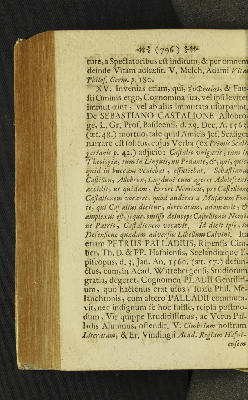 (796)
ture, a Spectatoribus est inditum, & per omnem
deinde Vitam adhæsit. V. Melch. Adami Vitæ
Philos. Germ. p. 180.
XV. Invenias etiam, qui, & Fau-
sti Ominis ergo, Cognomina sua, vel ipsi leviter
immutarint, vel ab aliis immutata usurparint.
De SEBASTIANO CASTALIONE Allobro-
ge, L. Gr. Prof. Basileensi, d. 29. Dec. A. 1563
(æt. 48.) mortuo, tale quid Amicis Jos. Scaliger
narrare est solitus, cujus Verba (ex Primis Scali-
gerianis p. 42.) adjicio: Castalio vulgaris, tum in
Theologia, tum in Linguis, un Pedante, & qui, quic-
quid in buccam veniebat, effutiebat. Sebastianus
Castilion, Allobrox, Lugduni cum ageret
accolis, ut quidam, Errore Nominis, pro Castilione,
Castalionem vocaret, quod audiret a Musarum Fon-
te, qui Castalius dicitur, derivatum, adamavit, &
amplexus est, jegue, omisso deinceps Castilionis Nomi-
ne Patris, Castalionem vocavit. Id dicit ipse, in
Defensione quadam adversus Libellum Calvini. Ita
etiam PETRUS PALLADIUS, Ripensis Cim-
ber, Th. D. & PP. Hafniensis, Seelandiæque E-
piscopus, d. 3. Jan. An. 1560. (æt. 57.) defun-
ctus, cum, in Acad. Wittebergensi, Studiorum
gratia, degeret, Cognomen PLADII Gentilit-
um, quo hactenus erat usus, suasu Phil. Me-
lanchtonis, cum altero PALLADII commuta-
vit, nec indignum se hoc fuisse, reipsa postmo-
dum, Vir quippe Eruditissimus, ac Verus Pal-
ladis Alumnus, ostendit. V. Cimbriam nostram
Literatam, & Er. Vindingii Acad. Regiam Hafni-
ensem